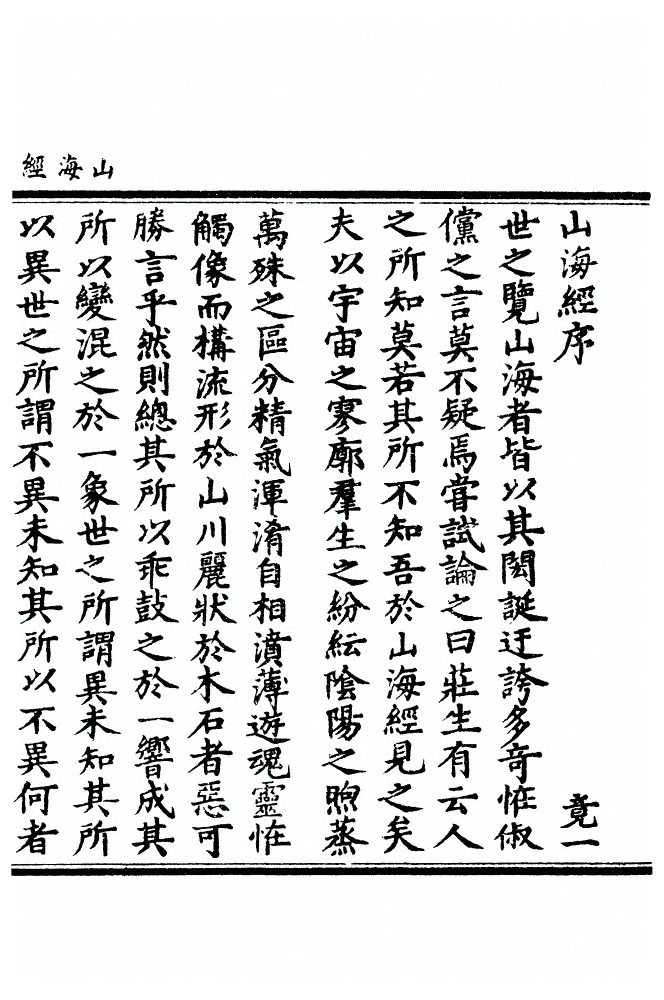 山海經
山海經序 竟一
世之覽山海者皆以其閎誕迂誇多奇恠俶
儻之言莫不疑焉甞試論之曰莊生有云人
之所知莫若其所不知吾於山海經見之矣
夫以宇宙之寥廓羣生之紛紜陰陽之煦蒸
萬殊之區分精氣渾淆自相濆薄遊魂靈恠
觸像而構流形於山川麗狀於木石者惡可
勝言乎然則總其所以乖鼓之於一響成其
所以變混之於一象世之所謂異未知其所
以異世之所謂不異未知其所以不異何者